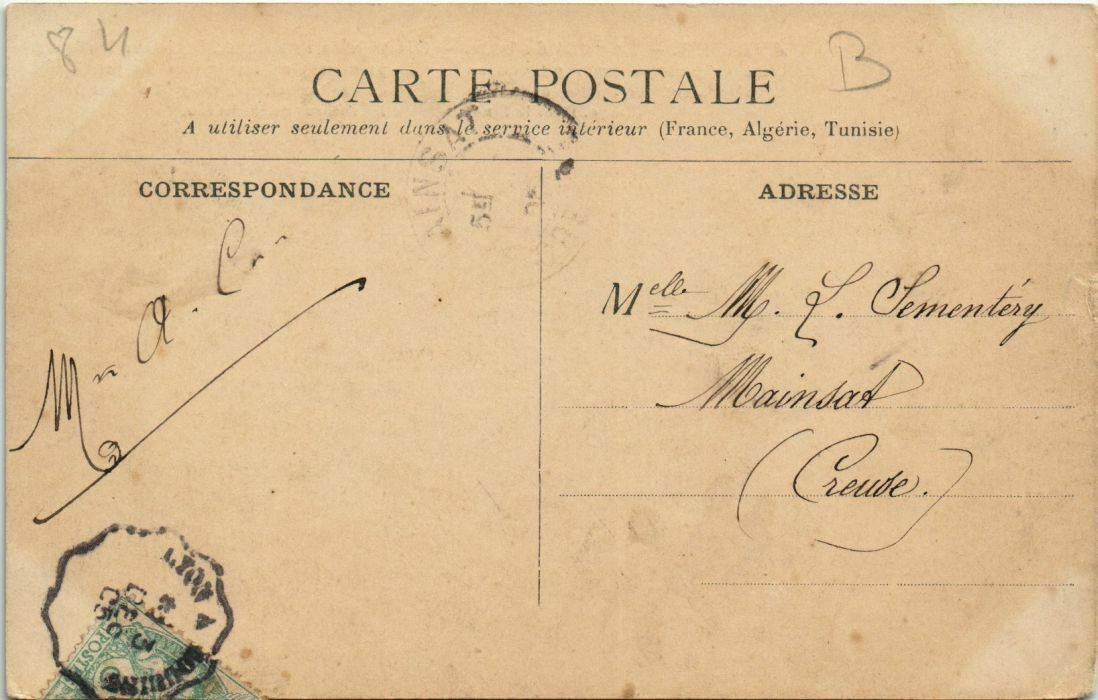 84
B
CARTE POSTALE
A utiliser seulement dans le service intérieur (France, Algérie, Tunisie)
CORRESPONDANCE
ADRESSE
AINSAT
Melle M. L. Sementéry
Mainsat
(Creuse.)
LYON A
POSTE